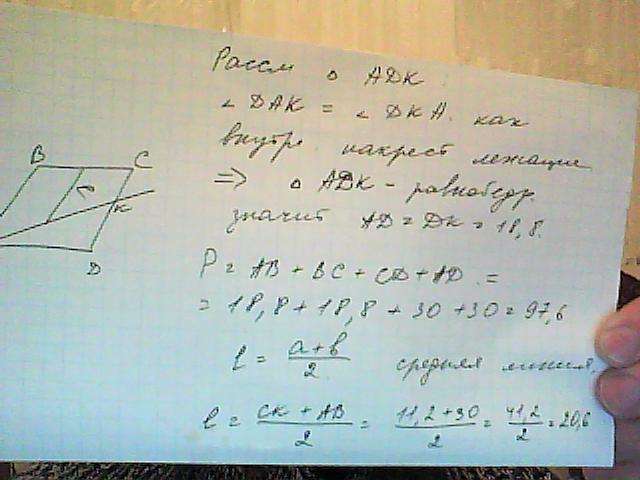 Рассм ▵ ADK.
∠ DAK = ∠ DKA. как
внутр. накрест лежащие
⇒ ▵ ADK - равнобедр.
значит AD = DK = 18,8.
B C
K
D
P = AB + BC + CD + AD =
= 18,8 + 18,8 + 30 + 30 = 97,6
l = a+b / 2 средняя линия.
l = CK + AB / 2 = 11,2 + 30 / 2 = 41,2 / 2 = 20,6